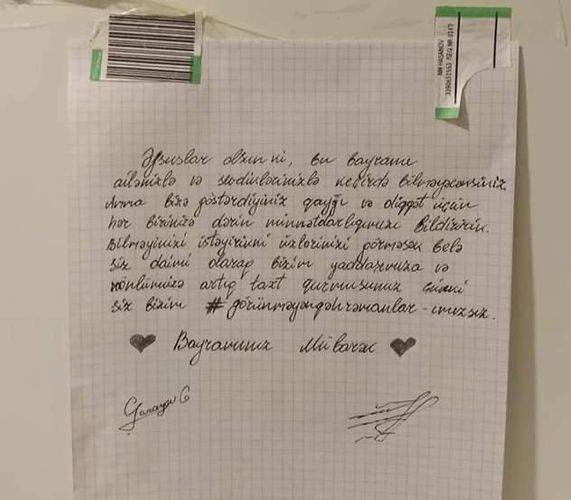 Əfsuslar olsun ki, bu bayramı
ailənizlə və sevdiklərinizlə keçirdə bilməyəcəksiniz.
Amma bizə göstərdiyiniz qayğı və diqqət üçün
hər birinizə dərin minnətdarlığımızı bildiririk.
Bilməyinizi istəyirik ki üzlərinizi görməsək belə
siz daimi olaraq bizim yaddaşımıza və
könlümüzə artıq taxt qurmusunuz çünki
siz bizim #görünməyənqəhrəmanlar-ımızsız.
Bayramınız Mübarək